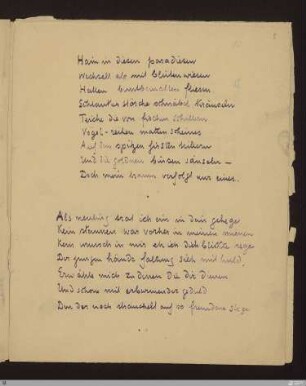 Hain in diesen paradiesen
Wechselt ab mit blütenwiesen
Hallen · buntbemalten fliesen.
Schlanker störche schnäbel kräuseln
Teiche die von fischen schillern
Vögel-reihen matten scheines
Auf den First trillern
Und die goldnen binsen säuseln -
Doch mein traum verfolgt nur eines.

Als neuling trat ich ein in dein gehege
Kein staunen war vorher in meinen mienen
Kein wunsch in mir eh ich dich blickte rege
Der jungen hände faltung sieh mit huld.
Erwähle mich zu denen die dir dienen
Und schone mit erbarmender geduld
Den der noch strauchelt auf so fremdem stege.